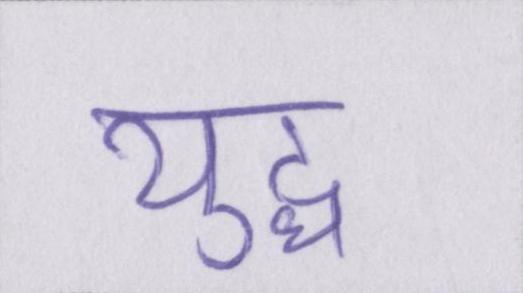 युद्ध